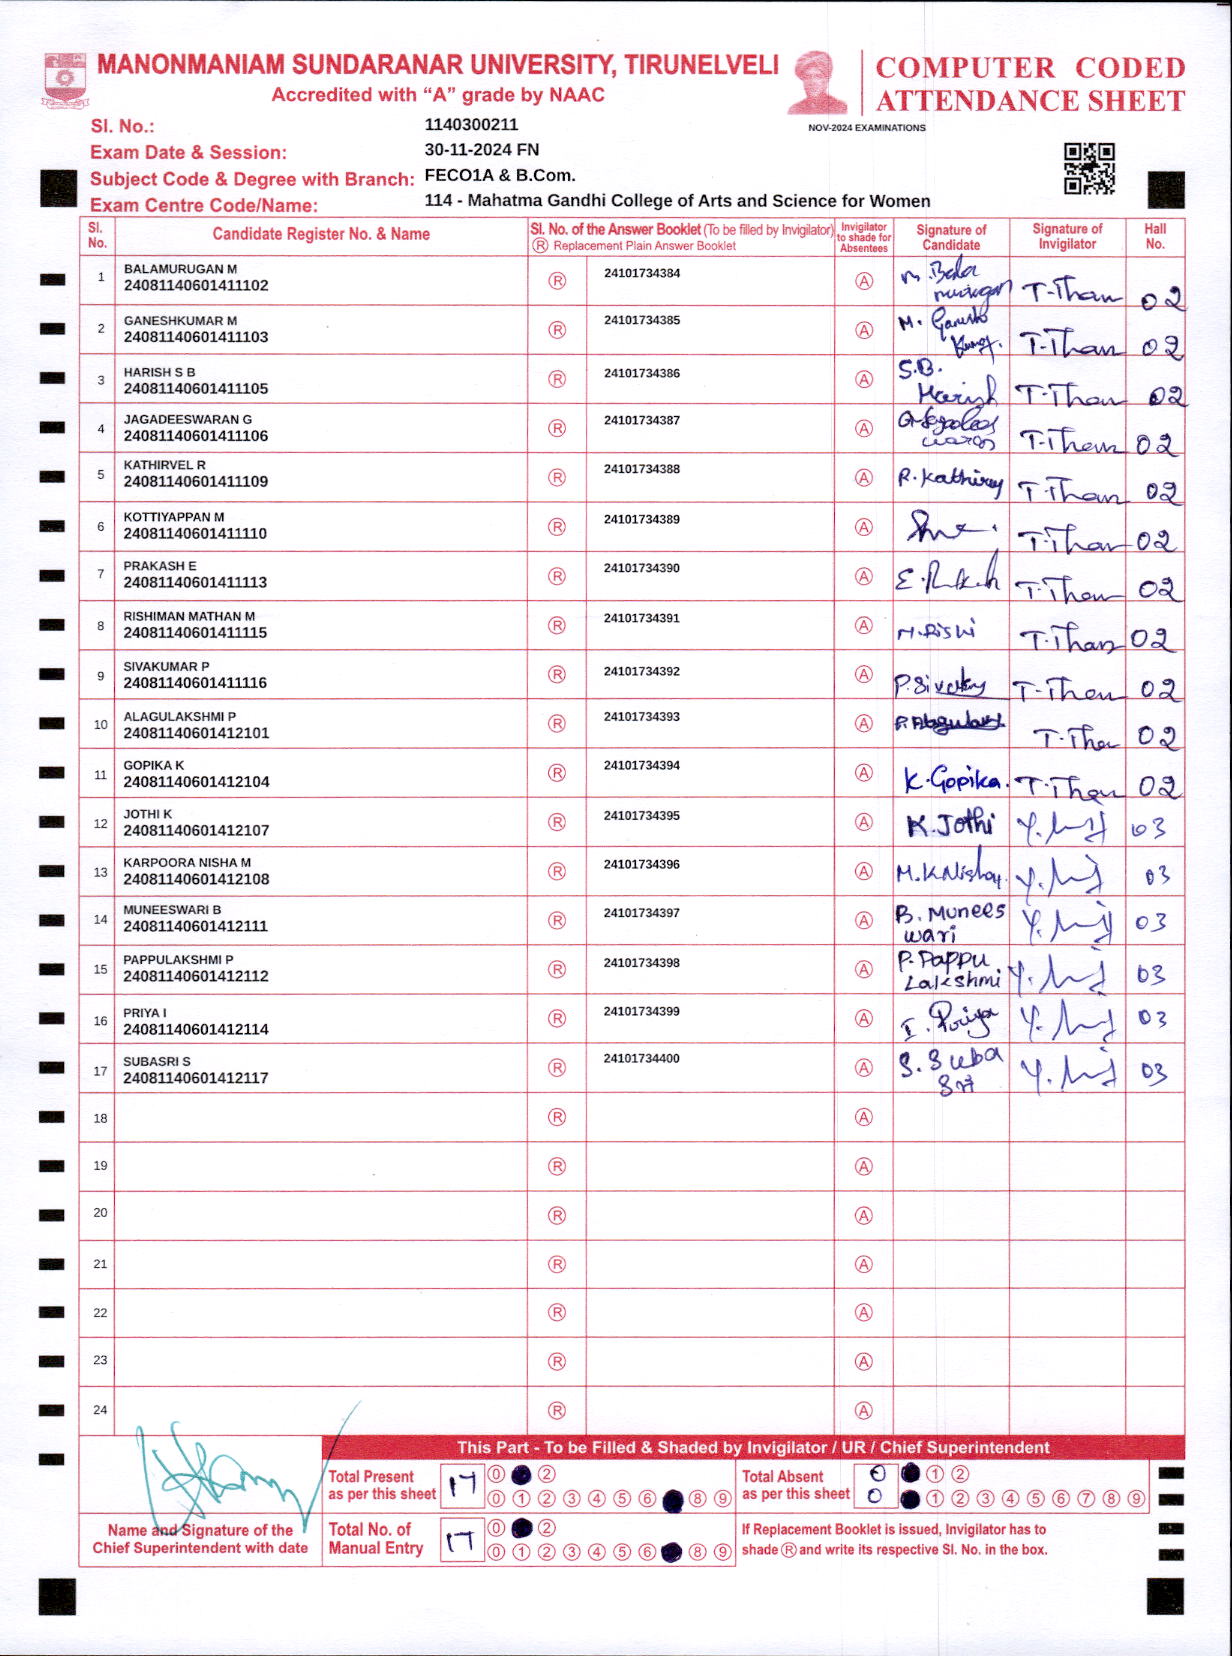 MANONMANIAM SUNDARANAR UNIVERSITY, TIRUNELVELI
Accredited with “A” grade by NAAC
COMPUTER CODED
ATTENDANCE SHEET
NOV-2024 EXAMINATIONS
Sl. No.: 1140300211
Exam Date & Session: 30-11-2024 FN
Subject Code & Degree with Branch: FECO1A & B.Com.
Exam Centre Code/Name: 114 - Mahatma Gandhi College of Arts and Science for Women
Sl. No. Candidate Register No. & Name Sl. No. of the Answer Booklet (To be filled by Invigilator) Ⓡ Replacement Plain Answer Booklet Invigilator to shade for Absentees Signature of Candidate Signature of Invigilator Hall No.
1 BALAMURUGAN M Ⓡ 24101734384 Ⓐ M. Bala
24081140601411102 murugan T-Than 02
2 GANESHKUMAR M Ⓡ 24101734385 Ⓐ M. Ganesh
24081140601411103 Kumar. T-Than 02
3 HARISH S B Ⓡ 24101734386 Ⓐ S.B.
24081140601411105 Harish T-Than 02
4 JAGADEESWARAN G Ⓡ 24101734387 Ⓐ
24081140601411106 T-Than 02
5 KATHIRVEL R Ⓡ 24101734388 Ⓐ R. Kathirvel
24081140601411109 T-Than 02
6 KOTTIYAPPAN M Ⓡ 24101734389 Ⓐ
24081140601411110 T-Than 02
7 PRAKASH E Ⓡ 24101734390 Ⓐ
24081140601411113 T-Than 02
8 RISHIMAN MATHAN M Ⓡ 24101734391 Ⓐ M. Rishi
24081140601411115 T-Than 02
9 SIVAKUMAR P Ⓡ 24101734392 Ⓐ
24081140601411116 T-Than 02
10 ALAGULAKSHMI P Ⓡ 24101734393 Ⓐ
24081140601412101 T-Than 02
11 GOPIKA K Ⓡ 24101734394 Ⓐ K. Gopika.
24081140601412104 T-Than 02
12 JOTHI K Ⓡ 24101734395 Ⓐ K. Jothi
24081140601412107 03
13 KARPOORA NISHA M Ⓡ 24101734396 Ⓐ
24081140601412108 03
14 MUNEESWARI B Ⓡ 24101734397 Ⓐ B. Munees
24081140601412111 wari 03
15 PAPPULAKSHMI P Ⓡ 24101734398 Ⓐ P. Pappu
24081140601412112 Lakshmi 03
16 PRIYA I Ⓡ 24101734399 Ⓐ I. Priya
24081140601412114 03
17 SUBASRI S Ⓡ 24101734400 Ⓐ S. Suba
24081140601412117 Sri 03
18 Ⓡ Ⓐ
19 Ⓡ Ⓐ
20 Ⓡ Ⓐ
21 Ⓡ Ⓐ
22 Ⓡ Ⓐ
23 Ⓡ Ⓐ
24 Ⓡ Ⓐ
This Part - To be Filled & Shaded by Invigilator / UR / Chief Superintendent
Total Present
as per this sheet 17
0 2
0 1 2 3 4 5 6 8 9
Total Absent
as per this sheet 0 0
1 2
1 2 3 4 5 6 7 8 9
Name and Signature of the
Chief Superintendent with date
Total No. of
Manual Entry 17
0 2
0 1 2 3 4 5 6 8 9
If Replacement Booklet is issued, Invigilator has to
shade Ⓡ and write its respective Sl. No. in the box.